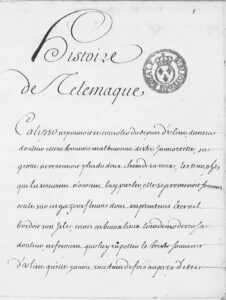 1
Histoire
de Telemaque
Calipso ne pouvoit se consoler du depart d'Ulisse, dans sa
douleur elle se trouvoit malheureuse d'estre immortelle, sa
grotte ne resonnoit plus du doux chant de sa voix, les nimphes
qui la servoient n'osoient luy parler, elle se promenoit souvent
seule sur les gazons fleuris dont un printems eternel
bordoit son Isle, mais ces beaux lieux loin de moderer sa
douleur ne faisoient que luy rapeller le triste souvenir
d'Ulisse qu'elle y avoit veu tant de fois aupres d'elle